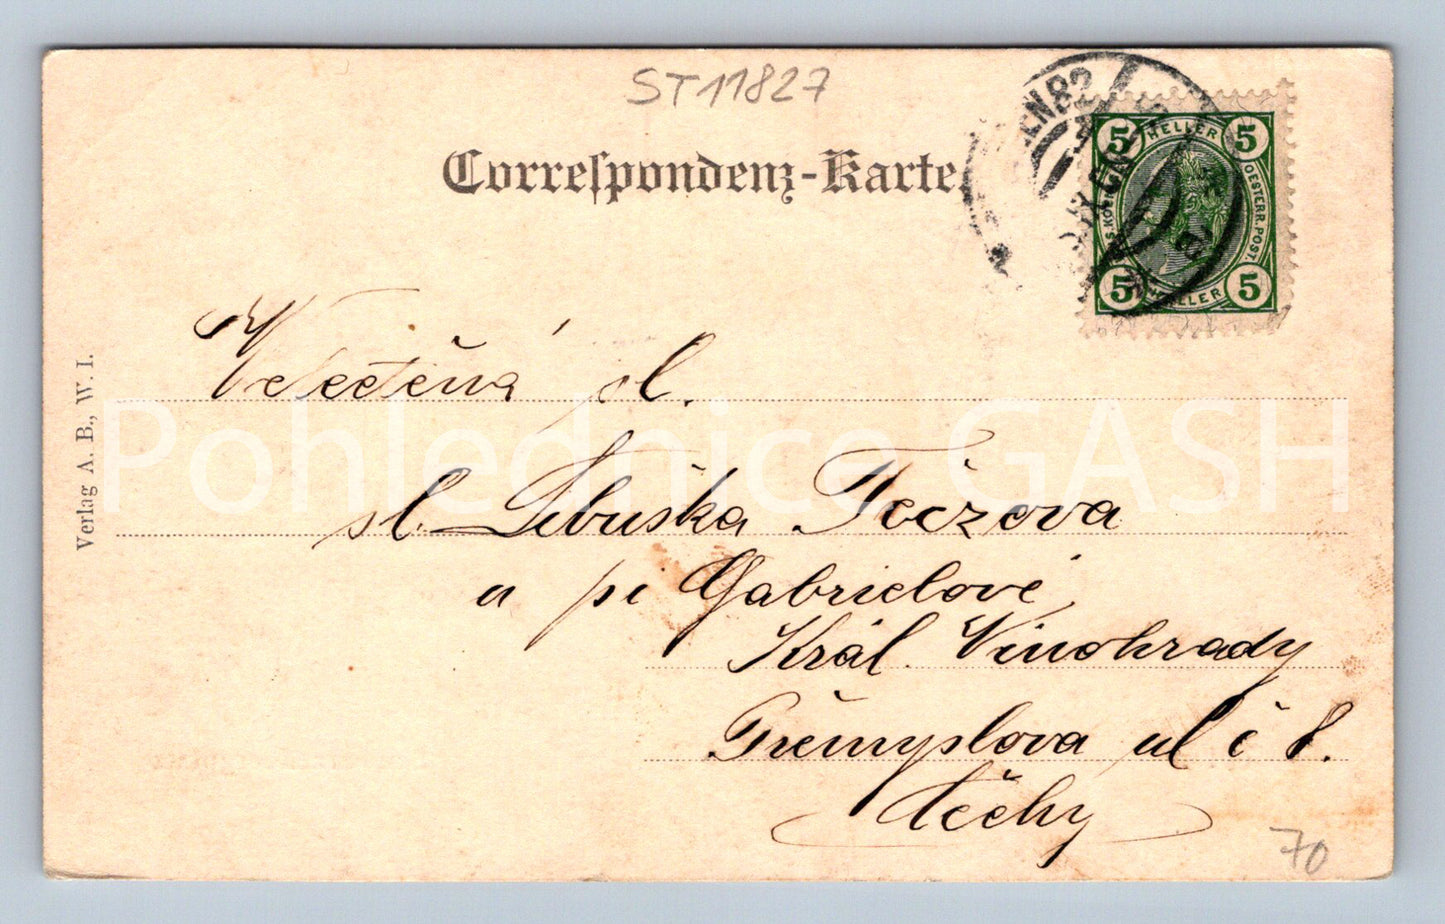 ST11827
Correspondenz-Karte.
5 HELLER 5
OESTERR. POST.
5 HELLER 5
Velectěná sl.
sl. Libuška
u pí Gabrielové
Král. Vinohrady
Přemyslova ul č 8.
Čechy
Verlag A. B., W. I.
Pohlednice GASH
70